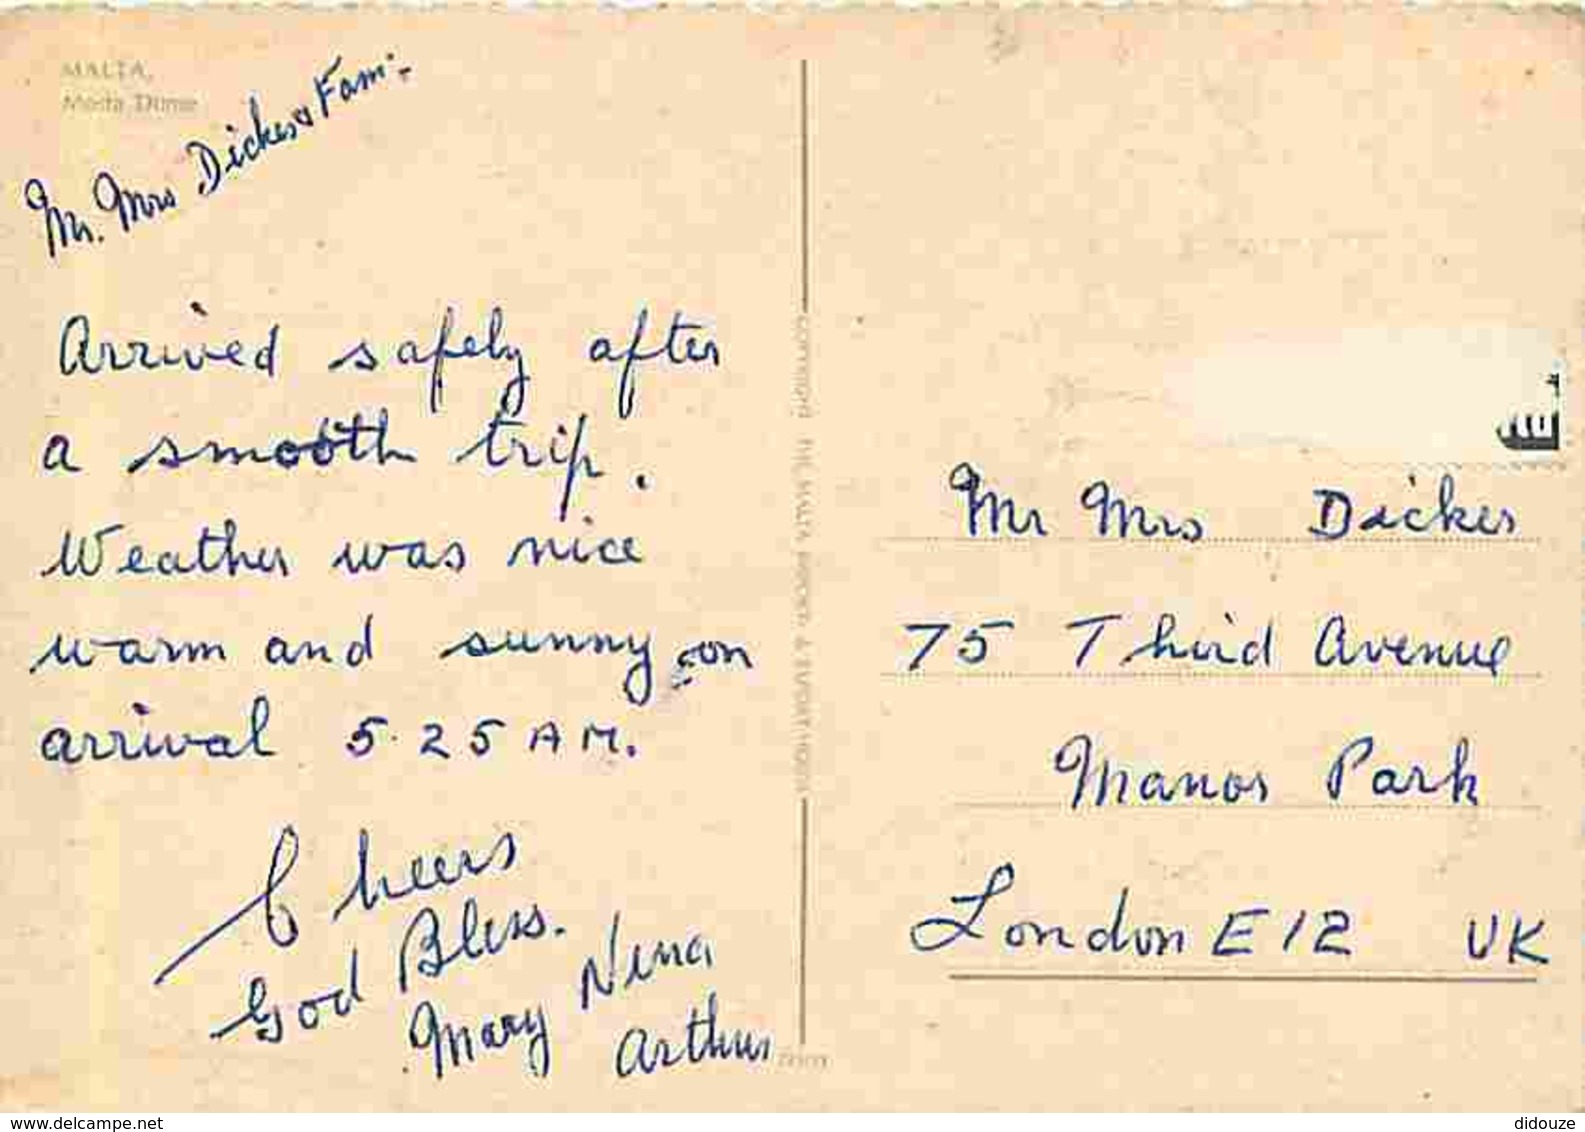 MALTA,
Mosta Dome
Mr. Mrs Dicker & Fam:-
Arrived safely after
a smooth trip.
Weather was nice
warm and sunny on
arrival 5.25 AM.
Cheers
God Bless.
Mary Nena
Arthur
COPYRIGHT THE MALTA IMPORT & EXPORT HOUSE
Mr Mrs Dicker
75 Third Avenue
Manor Park
London E12 UK
www.delcampe.net
didouze